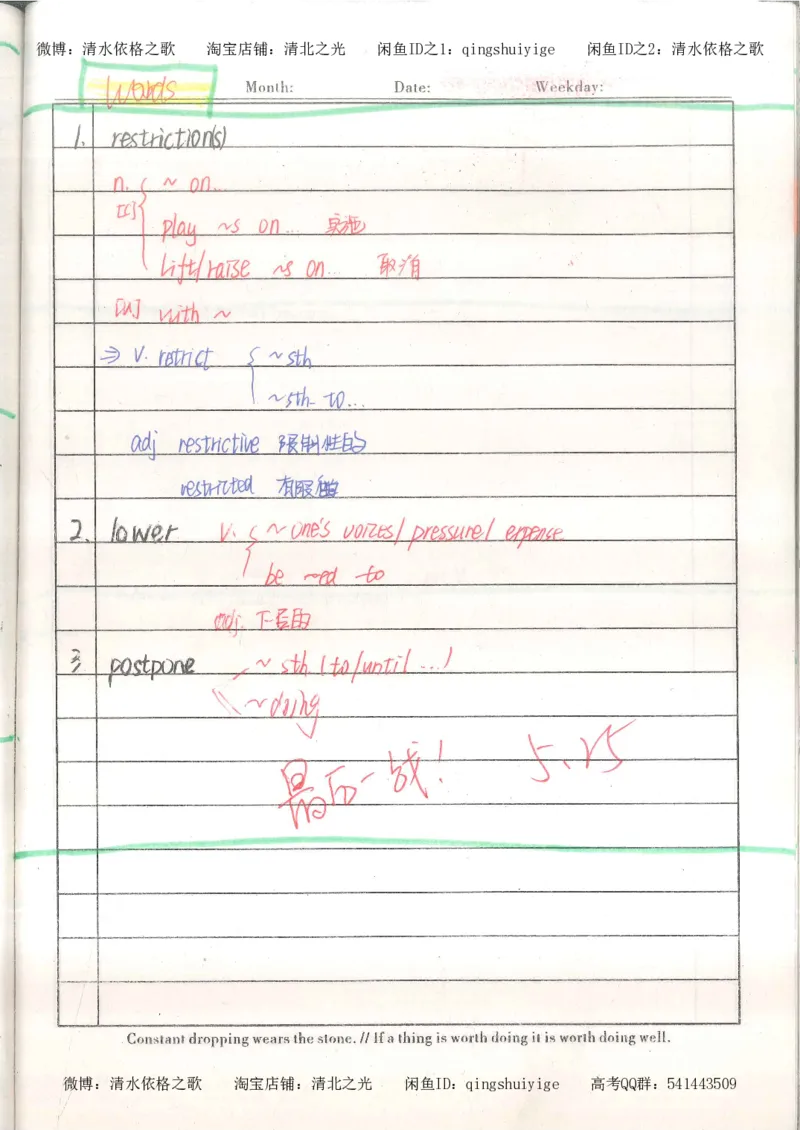 微博：清水依格之歌 淘宝店铺：清北之光 闲鱼ID之1：qingshuiyige 闲鱼ID之2：清水依格之歌
Words Month: Date: Weekday:
1. restriction(s)
n. ~ on...
[C]
play ~s on... 实施
lift/raise ~s on... 取消
[U] with ~
⇒ v. restrict ~sth
~sth to...
adj restrictive 限制性的
restricted 有限的
2. lower v. ~ one's voices/ pressure/ expense
be ~ed to
adj. 下层的
3 postpone ~ sth (to/until ...)
~doing
最后一战! 5.25
Constant dropping wears the stone. // If a thing is worth doing it is worth doing well.
微博：清水依格之歌 淘宝店铺：清北之光 闲鱼ID：qingshuiyige 高考QQ群：541443509